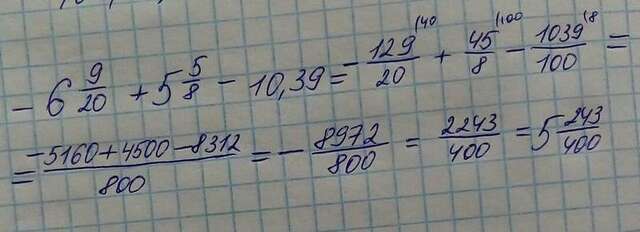 -6 9/20 + 5 5/8 - 10,39 = -129/20 (40 + 45/8 (100 - 1039/100 (8 =
= -5160+4500-8312/800 = -8972/800 = 2243/400 = 5 243/400